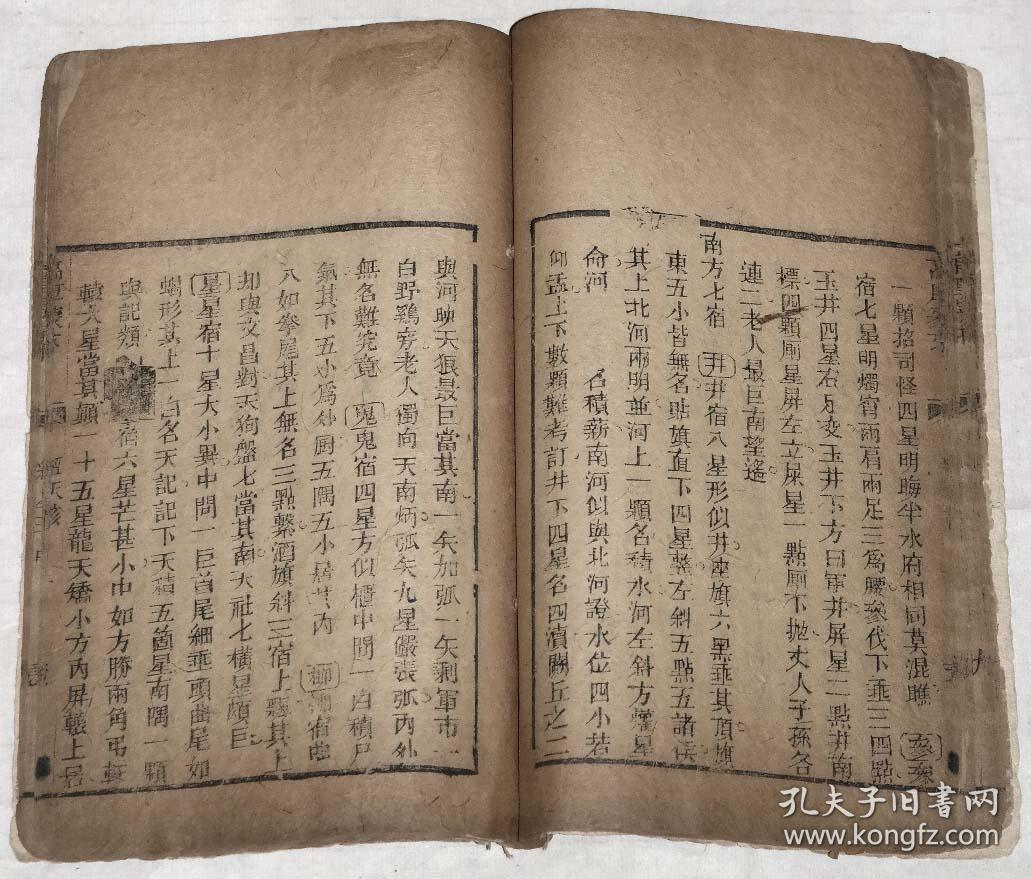 一顆掐司怪四星明晦半水府相同莫混瞧 參參
宿七星明燭宵兩肩兩足三為腰參伐下垂三四點
玉井四星右足交玉井下方曰軍井屏星二點井南
標四顆厠星屏左立屎星一點厠下拋丈人子孫各
連二老人最巨南望遙
南方七宿 井井宿八星形似井座旗六黑垂其頂旗
東五小皆無名鉞旗直下四星整左斜五點五諸侯
其上北河兩明並河上一顆名積水河左斜方爟星
俞河 名積薪南河似與北河證水位四小若
仰盂上下數顆難考訂井下四星名四瀆闕丘之二
與河映天狼最巨當其南一矢加弧一矢剩軍市一
白野鷄旁老人獨向天南炳弧矢九星儼張弧內外
無名難究竟 鬼鬼宿四星方似櫃中間一白積尸
氣其下五小為外厨五隅五小居其內 柳柳宿曲
八如拳尾其上無名三點繫酒旗斜三宿上飄其上
却與文昌對天狗盤七當其南天社七橫星頗巨
星星宿十星大小異中間一巨首尾細垂頭曲尾如
蝎形其上一白名天記記下天積五箇星南隅一顆
與記類 宿六星芒甚小中如方勝兩角弔軒
轅大星當其顛一十五星龍天矯小方內屏轅上居